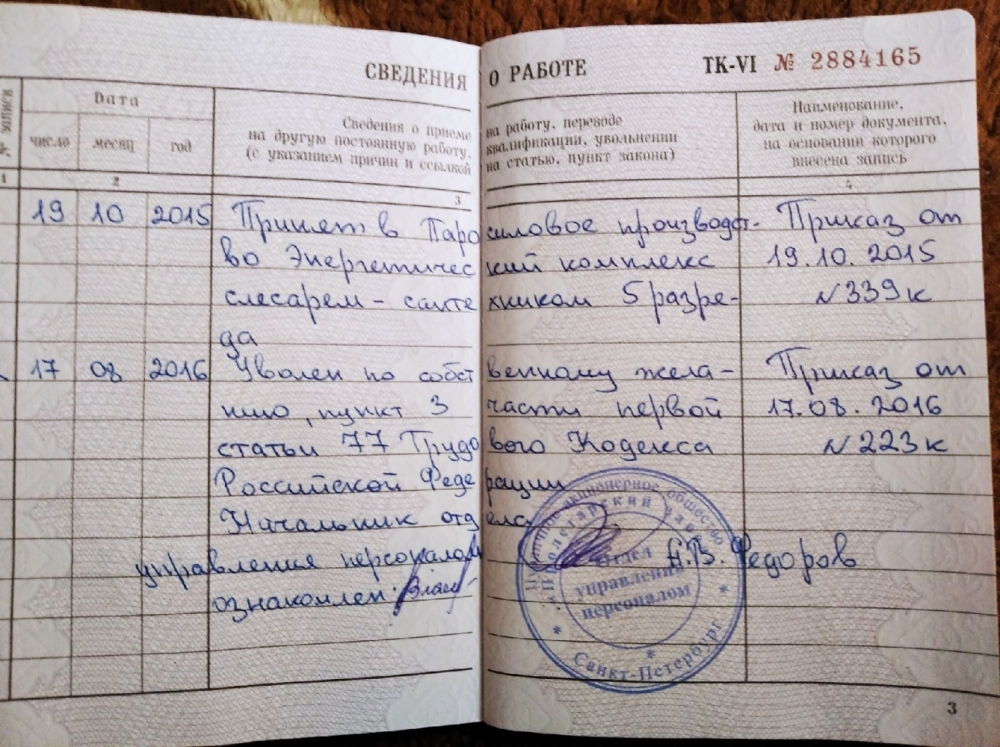 СВЕДЕНИЯ О РАБОТЕ ТК-VI № 2884165
Дата
число месяц год
Сведения о приеме на работу, переводе
на другую постоянную работу, квалификации, увольнении
(с указанием причин и ссылкой на статью, пункт закона)
Наименование,
дата и номер документа,
на основании которого
внесена запись
1 2 3 4
19 10 2015 Принят в Паросиловое производст- Приказ от
во Энергетический комплекс 19.10.2015
слесарем-сантехником 5 разре- № 339к
да
17 08 2016 Уволен по собственному жела- Приказ от
нию, пункт 3 части первой 17.08.2016
статьи 77 Трудового Кодекса № 223к
Российской Федерации
Начальник отдела
управления персоналом А.В. Федоров
ознакомлен:
акционерное общество
«Пролетарский завод»
Отдел
управления
персоналом
* Санкт-Петербург *
3